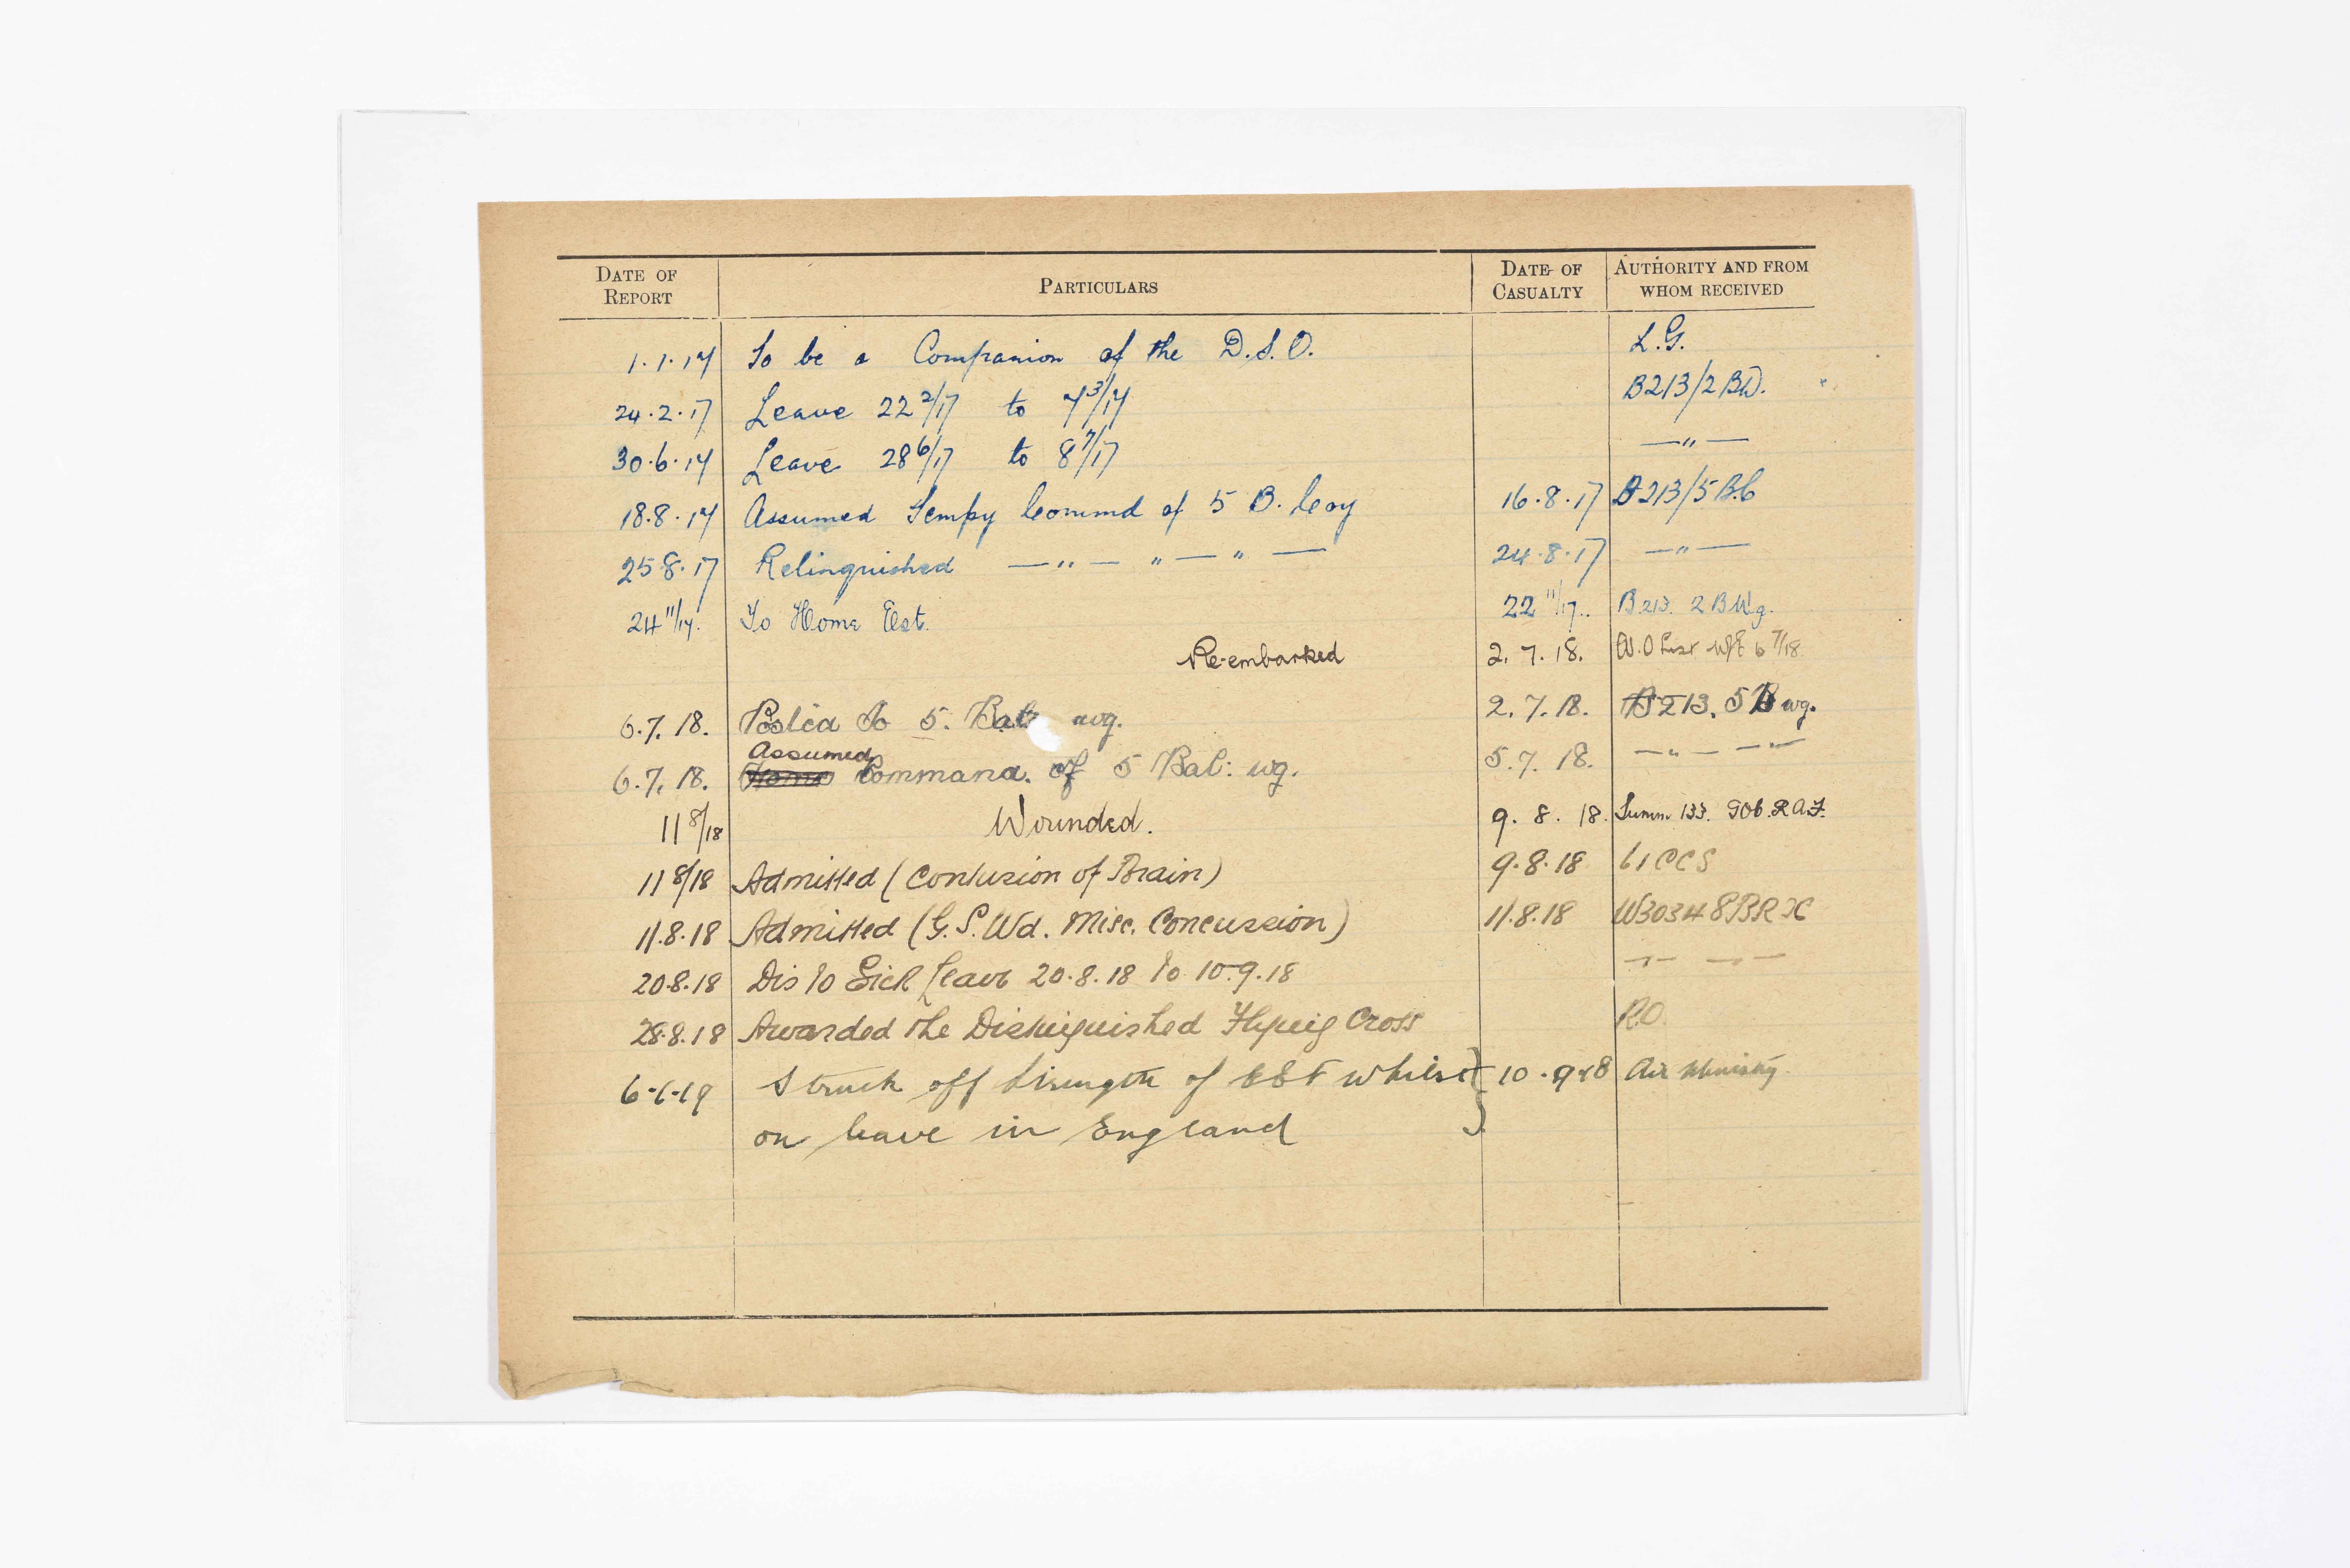 DATE OF REPORT PARTICULARS DATE OF CASUALTY AUTHORITY AND FROM WHOM RECEIVED
1.1.17 To be a Companion of the D.S.O. L.G.
24.2.17 Leave 22 2/17 to 7 3/17 B213/2 BW.
30.6.17 Leave 28 6/17 to 8 7/17 —"—
18.8.17 Assumed Tempy Commd of 5 B. Coy 16.8.17 B213/5 B.C
25.8.17 Relinquished —"— "—"— 24.8.17 —"—
24 11/17. To Home Est. 22 11/17.. B213. 2 B Wg.
Re-embarked 2.7.18. W.O List W/E 6 7/18.
6.7.18. Posted To 5. Bal wg. 2.7.18. B213. 5 B wg.
Assumed
6.7.18. Command. of 5 Bal: wg. 5.7.18. —"— —"—
11 8/18 Wounded. 9.8.18. Summ 133. GOC. RAF.
11 8/18 Admitted (Contusion of Brain) 9.8.18 61 CCS
11.8.18 Admitted (G.S.Wd. Misc. Concussion) 11.8.18 W3034 8BRX
20.8.18 Dis to Sick Leave 20.8.18 to 10.9.18 —"— —"—
28.8.18 Awarded the Distinguished Flying Cross R.O.
6-1-19 Struck off Strength of BEF whilst 10.9.18 Air Ministry
on leave in England